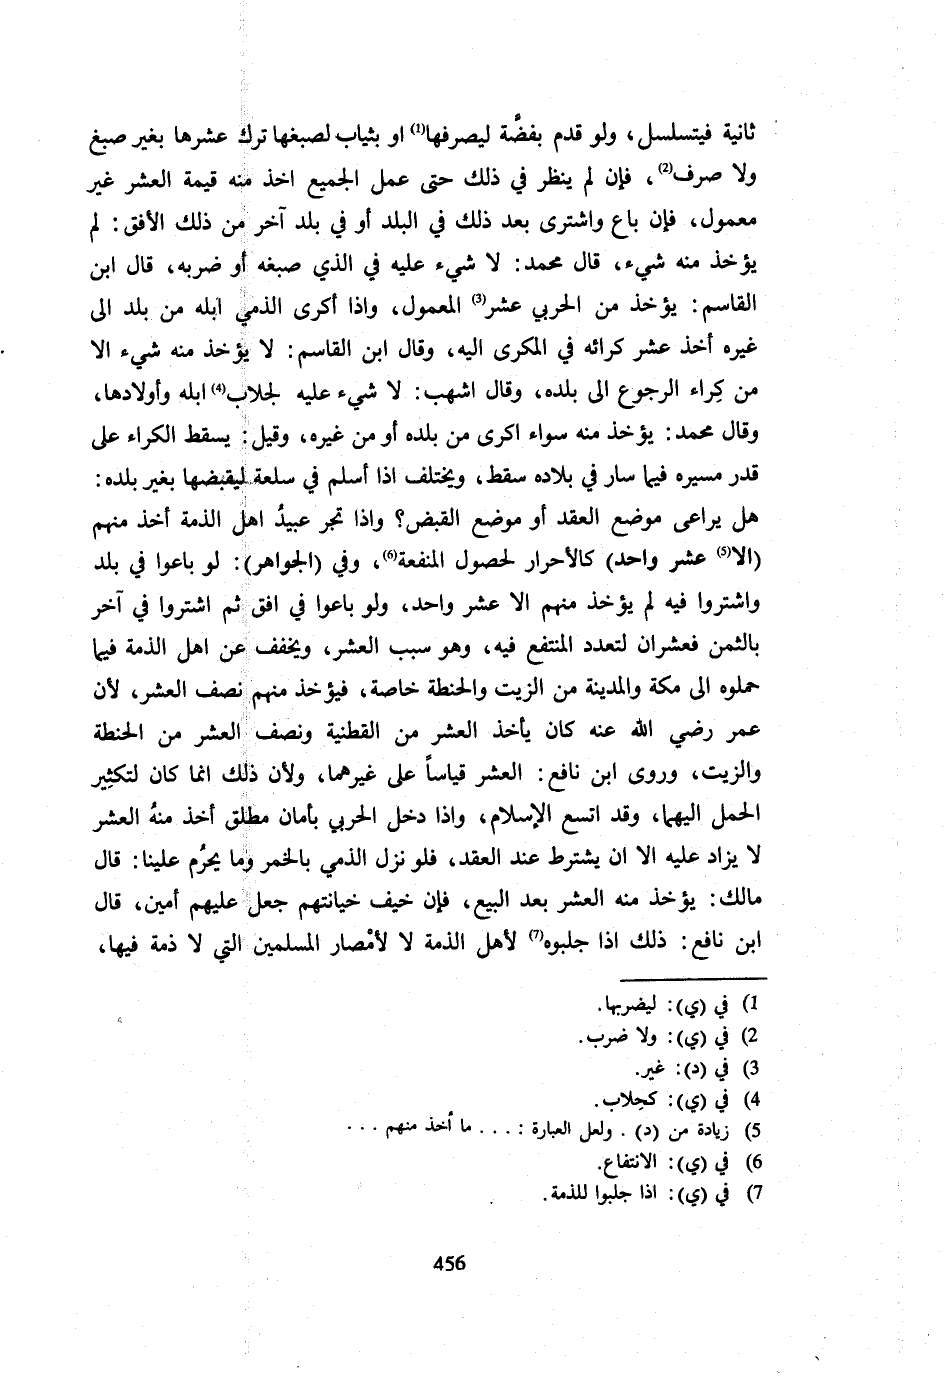 ثانية فيتسلسل، ولو قدم بفضَّة ليصرفها(1) او بثياب لصبغها ترك عشرها بغير صبغ
ولا صرف(2)، فإن لم ينظر في ذلك حتى عمل الجميع اخذ منه قيمة العشر غير
معمول، فإن باع واشترى بعد ذلك في البلد أو في بلد آخر من ذلك الأفق: لم
يؤخذ منه شيء، قال محمد: لا شيء عليه في الذي صبغه أو ضربه، قال ابن
القاسم: يؤخذ من الحربي عشر(3) المعمول، واذا أكرى الذمي ابله من بلد الى
غيره أخذ عشر كرائه في المكرى اليه، وقال ابن القاسم: لا يؤخذ منه شيء الا
من كِراء الرجوع الى بلده، وقال اشهب: لا شيء عليه لجلاب(4) ابله وأولادها،
وقال محمد: يؤخذ منه سواء اكرى من بلده أو من غيره، وقيل: يسقط الكراء على
قدر مسيره فيما سار في بلاده سقط، ويختلف اذا أسلم في سلعة ليقبضها بغير بلده:
هل يراعى موضع العقد أو موضع القبض؟ واذا تجر عبيدُ اهل الذمة أخذ منهم
(الا(5) عشر واحد) كالأحرار لحصول المنفعة(6)، وفي (الجواهر): لو باعوا في بلد
واشتروا فيه لم يؤخذ منهم الا عشر واحد، ولو باعوا في افق ثم اشتروا في آخر
بالثمن فعشران لتعدد المنتفع فيه، وهو سبب العشر، ويخفف عن اهل الذمة فيما
حملوه الى مكة والمدينة من الزيت والحنطة خاصة، فيؤخذ منهم نصف العشر، لأن
عمر رضي الله عنه كان يأخذ العشر من القطنية ونصف العشر من الحنطة
والزيت، وروى ابن نافع: العشر قياساً على غيرهما، ولأن ذلك انما كان لتكثِير
الحمل اليهما، وقد اتسع الإسلام، واذا دخل الحربي بأمان مطلق أخذ منهُ العشر
لا يزاد عليه الا ان يشترط عند العقد، فلو نزل الذمي بالخمر وما يحرُم علينا: قال
مالك: يؤخذ منه العشر بعد البيع، فإن خيف خيانتهم جعل عليهم أمين، قال
ابن نافع: ذلك اذا جلبوه(7) لأهل الذمة لا لأمْصار المسلمين التي لا ذمة فيها،
1) في (ي): ليضربها.
2) في (ي): ولا ضرب.
3) في (د): غير.
4) في (ي): كجِلاب.
5) زيادة من (د) . ولعل العبارة : . . . ما أخذ منهم . . .
6) في (ي): الانتفاع.
7) في (ي): اذا جلبوا للذمة.
456